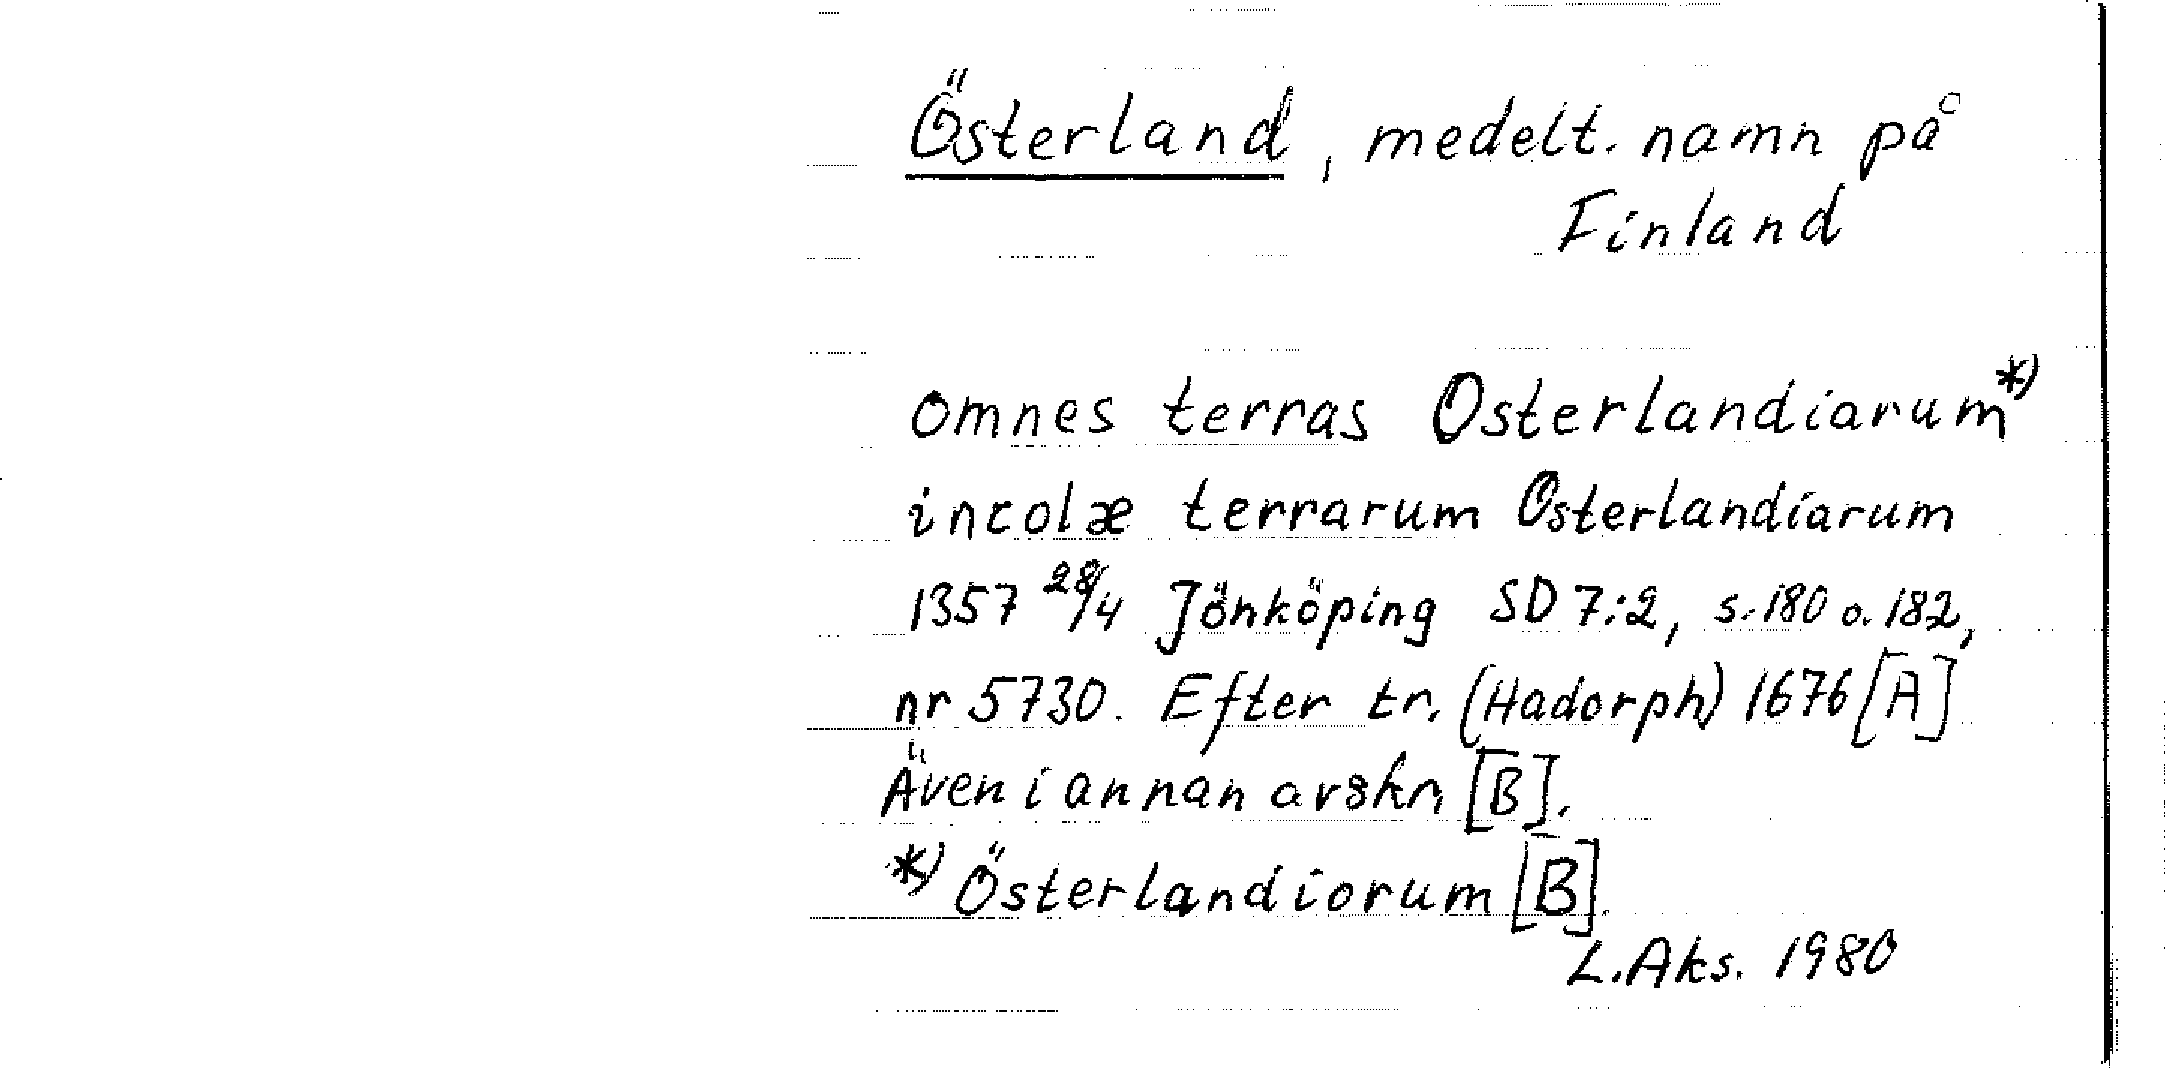 Österland, medelt. namn på
Finland
omnes terras Osterlandiarum *)
incolæ terrarum Osterlandiarum
1357 28/4 Jönköping SD 7:2, s. 180 o. 182,
nr 5730. Efter tr. (Hadorph) 1676 [A]
Även i annan avskr. [B].
*) Österlandiorum [B].
L. Aks. 1980